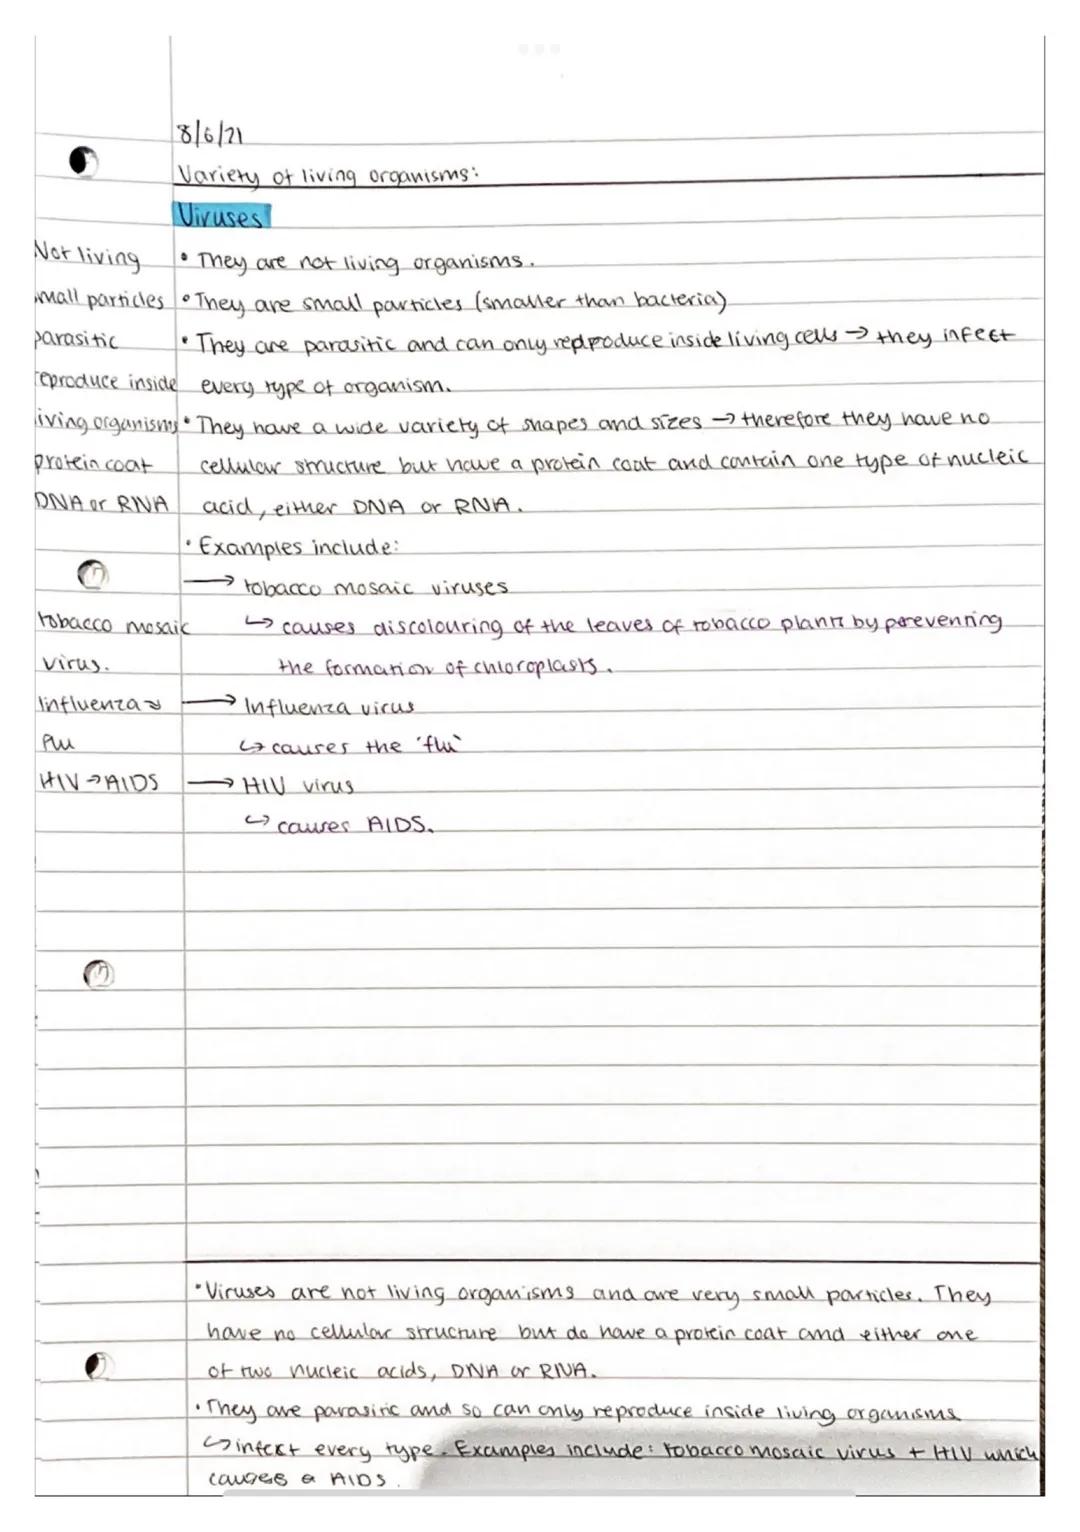 8/6/21
Variety of living organisms:
Viruses
Not living • They are not living organisms.
mall particles • They are small particles (smaller than bacteria)
parasitic • They are parasitic and can only repdproduce inside living cells → they infect
reproduce inside every type of organism.
iving organisms • They have a wide variety of shapes and sizes → therefore they have no
protein coat cellular structure but have a protein coat and contain one type of nucleic
DNA or RNA acid, either DNA or RNA.
• Examples include:
→ tobacco mosaic viruses
tobacco mosaic ↳ causes discolouring of the leaves of tobacco plants by pereventing
virus. the formation of chloroplasts.
Influenza → Influenza virus
flu ↳ causes the 'flu'
HIV → AIDS → HIV virus
↳ causes AIDS.
• Viruses are not living organisms and are very small particles. They
have no cellular structure but do have a protein coat and either one
of two nucleic acids, DNA or RNA.
• They are parasitic and so can only reproduce inside living organisms
↳ infect every type. Examples include: tobacco mosaic virus + HIV which
causes a AIDS.